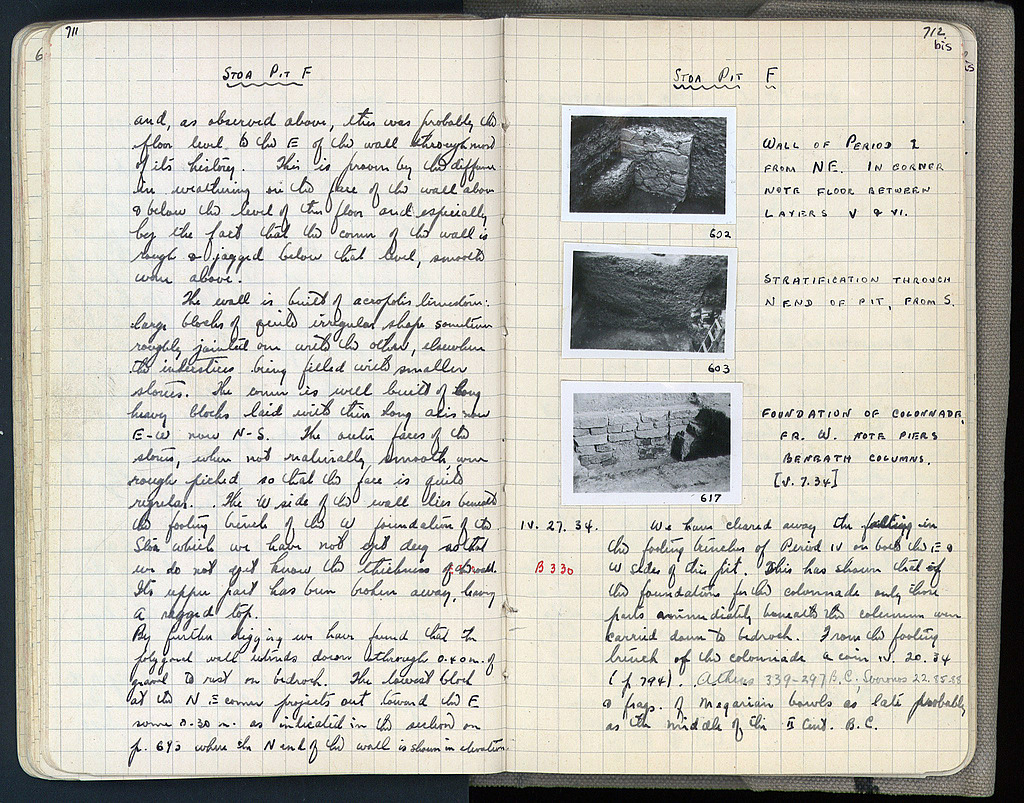 711
STOA PIT F
and, as observed above, this was probably the
floor level to the E of the wall through most
of its history. This is proven by the difference
in weathering on the face of the wall above
& below the level of this floor and especially
by the fact that the corner of the wall is
rough & jagged below that level, smooth
worn above.
The wall is built of acropolis limestone:
large blocks of quite irregular shape sometimes
roughly jointed one with the other, elsewhere
the interstices being filled with smaller
stones. The corner is well built of long
heavy blocks laid with their long axis now
E-W now N-S. The outer faces of the
stones, when not naturally smooth, were
rough picked so that the face is quite
regular. The W side of the wall lies beneath
the footing trench of the W foundation of the
Stoa which we have not yet dug so that
we do not yet know the thickness of the wall.
Its upper part has been broken away, leaving
a ragged top.
By further digging we have found that the
polygonal wall extends down through 0.40 m. of
gravel to rest on bedrock. The lowest block
at the N E corner projects out toward the E
some 0.30 m. as indicated in the section on
p. 693 where the N end of the wall is shown in elevation.
712
bis
STOA PIT F
WALL OF PERIOD I
FROM NE. IN CORNER
NOTE FLOOR BETWEEN
LAYERS V & VI.
602
STRATIFICATION THROUGH
N END OF PIT, FROM S.
603
FOUNDATION OF COLONNADE,
FR. W. NOTE PIERS
BENEATH COLUMNS.
[V.7.34]
617
IV. 27. 34. We have cleared away the filling in
the footing trenches of Period IV on both the E &
B 330 W sides of this pit. This has shown that of
the foundations for the colonnade only those
parts immediately beneath the columns were
carried down to bedrock. From the footing
trench of the colonnade a coin IV. 20. 34
(p 794). Athens 339-297 B.C.; Svoronos 22.85-88
& frags. of Megarian bowls as late probably
as the middle of the II Cent. B.C.